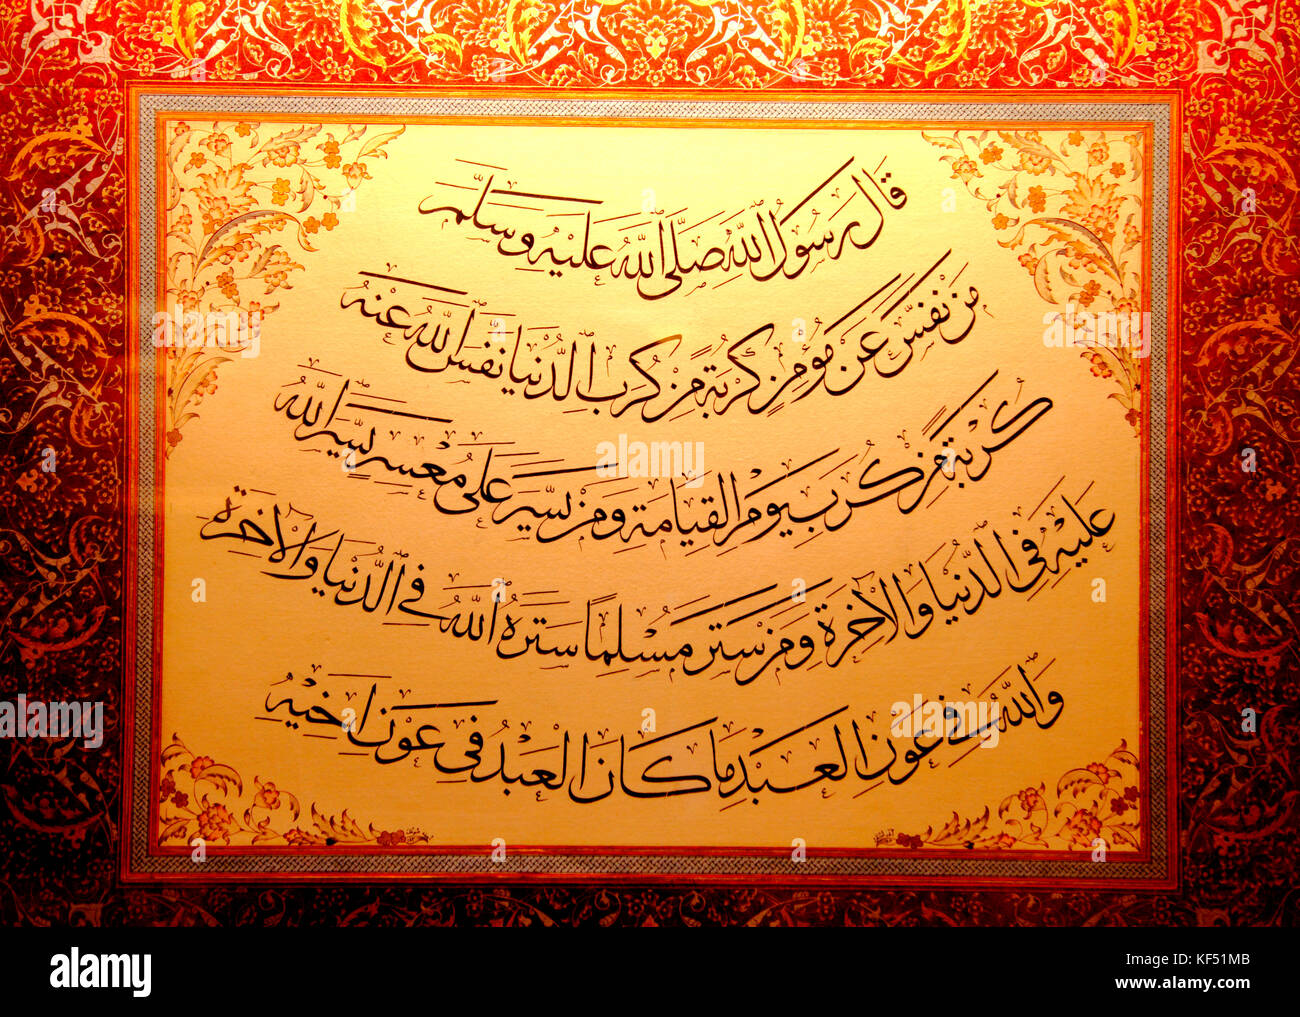 قَالَ رَسُولُ اللّٰهِ صَلَّى اللّٰهُ عَلَيْهِ وَسَلَّمَ
مَنْ نَفَّسَ عَنْ مُؤْمِنٍ كُرْبَةً مِنْ كُرَبِ الدُّنْيَا نَفَّسَ اللّٰهُ عَنْهُ
كُرْبَةً مِنْ كُرَبِ يَوْمِ الْقِيَامَةِ وَمَنْ يَسَّرَ عَلَى مُعْسِرٍ يَسَّرَ اللّٰهُ
عَلَيْهِ فِى الدُّنْيَا وَالْآخِرَةِ وَمَنْ سَتَرَ مُسْلِمًا سَتَرَهُ اللّٰهُ فِى الدُّنْيَا وَالْآخِرَةِ
وَاللّٰهُ فِى عَوْنِ الْعَبْدِ مَا كَانَ الْعَبْدُ فِى عَوْنِ اَخِيْهِ
alamy stock photo
KF51MB
www.alamy.com